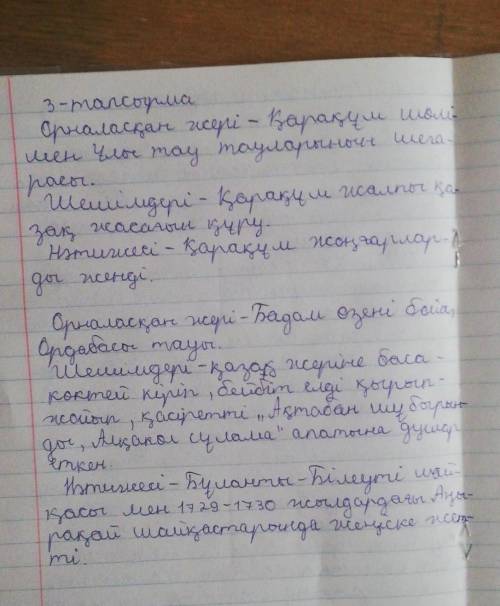 3-тапсырма
Орналасқан жері - Қарақұм шөлі-
мен Ұлы тау тауларының шега-
расы.
Шешімдері - Қарақұм жалпы қа-
зақ жасағын құру.
Нәтижесі - Қарақұм жоңғарлар-
ды женді.
Орналасқан жері - Бадам өзені бойы,
Ордабасы тауы.
Шешімдері - қазақ жеріне баса-
көктей кіріп, бейбіт елді қырып-
жойып, қасіретті „Ақтабан шұбырын-
ды, Алқакөл сұлама" апатына душар
еткен.
Нәтижесі - Бұланты-Білеуті шай-
қасы мен 1729-1730 жылдардағы Аңы-
рақай шайқастарында жеңіске жет-
ті.